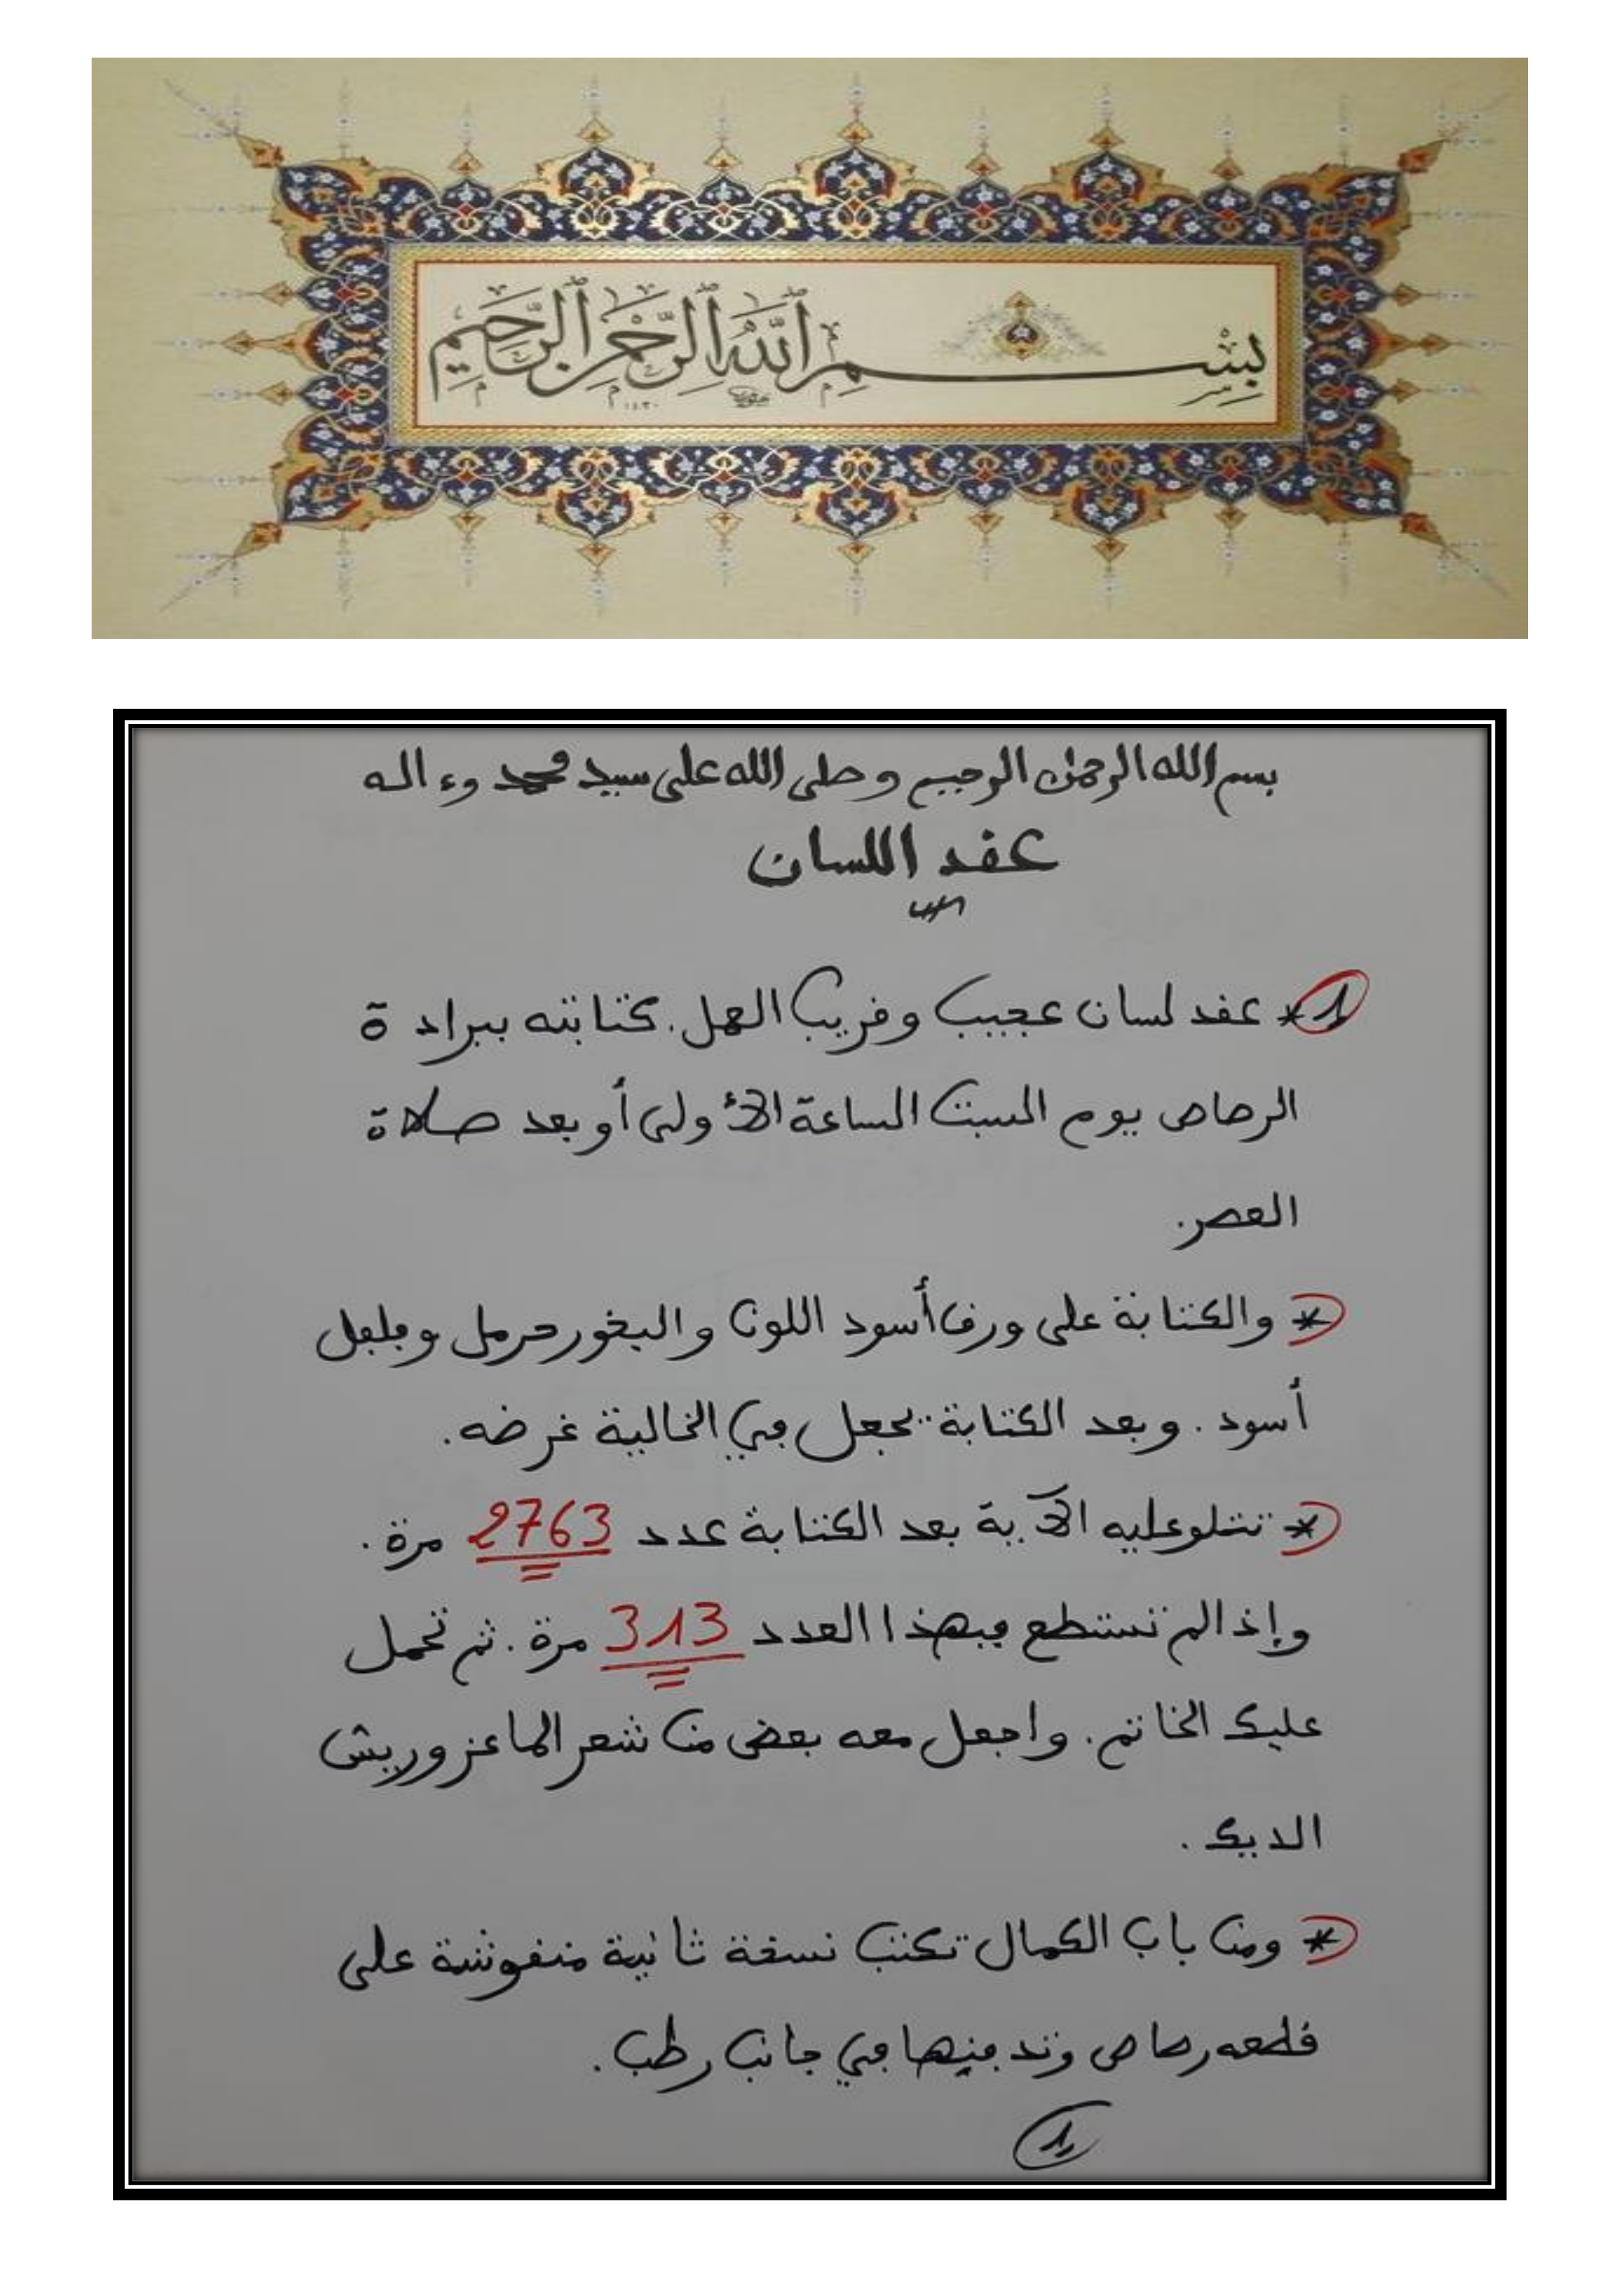 بِسْمِ ٱللَّهِ ٱلرَّحْمَٰنِ ٱلرَّحِيمِ
١٤٣٠
بسم الله الرحمن الرحيم وصلى الله على سيد محمد وءاله
عقد اللسان
1* عقد لسان عجيب وقريب العمل. كتابته ببرادة
الرصاص يوم السبت الساعة الأولى أو بعد صلاة
العصر.
* والكتابة على ورق أسود اللون والبخور حرمل وفلفل
أسود. وبعد الكتابة تجعل في الخالية غرضه.
* تتلو عليه الآية بعد الكتابة عدد 2763 مرة.
وإذا لم تستطع فبهذا العدد 313 مرة. ثم تحمل
عليك الخاتم. واجعل معه بعض من شعر الماعز وريش
الديك.
* ومن باب الكمال تكتب نسخة ثانية منقوشة على
قطعه رصاص وتدفنها في جانب رطب.
1